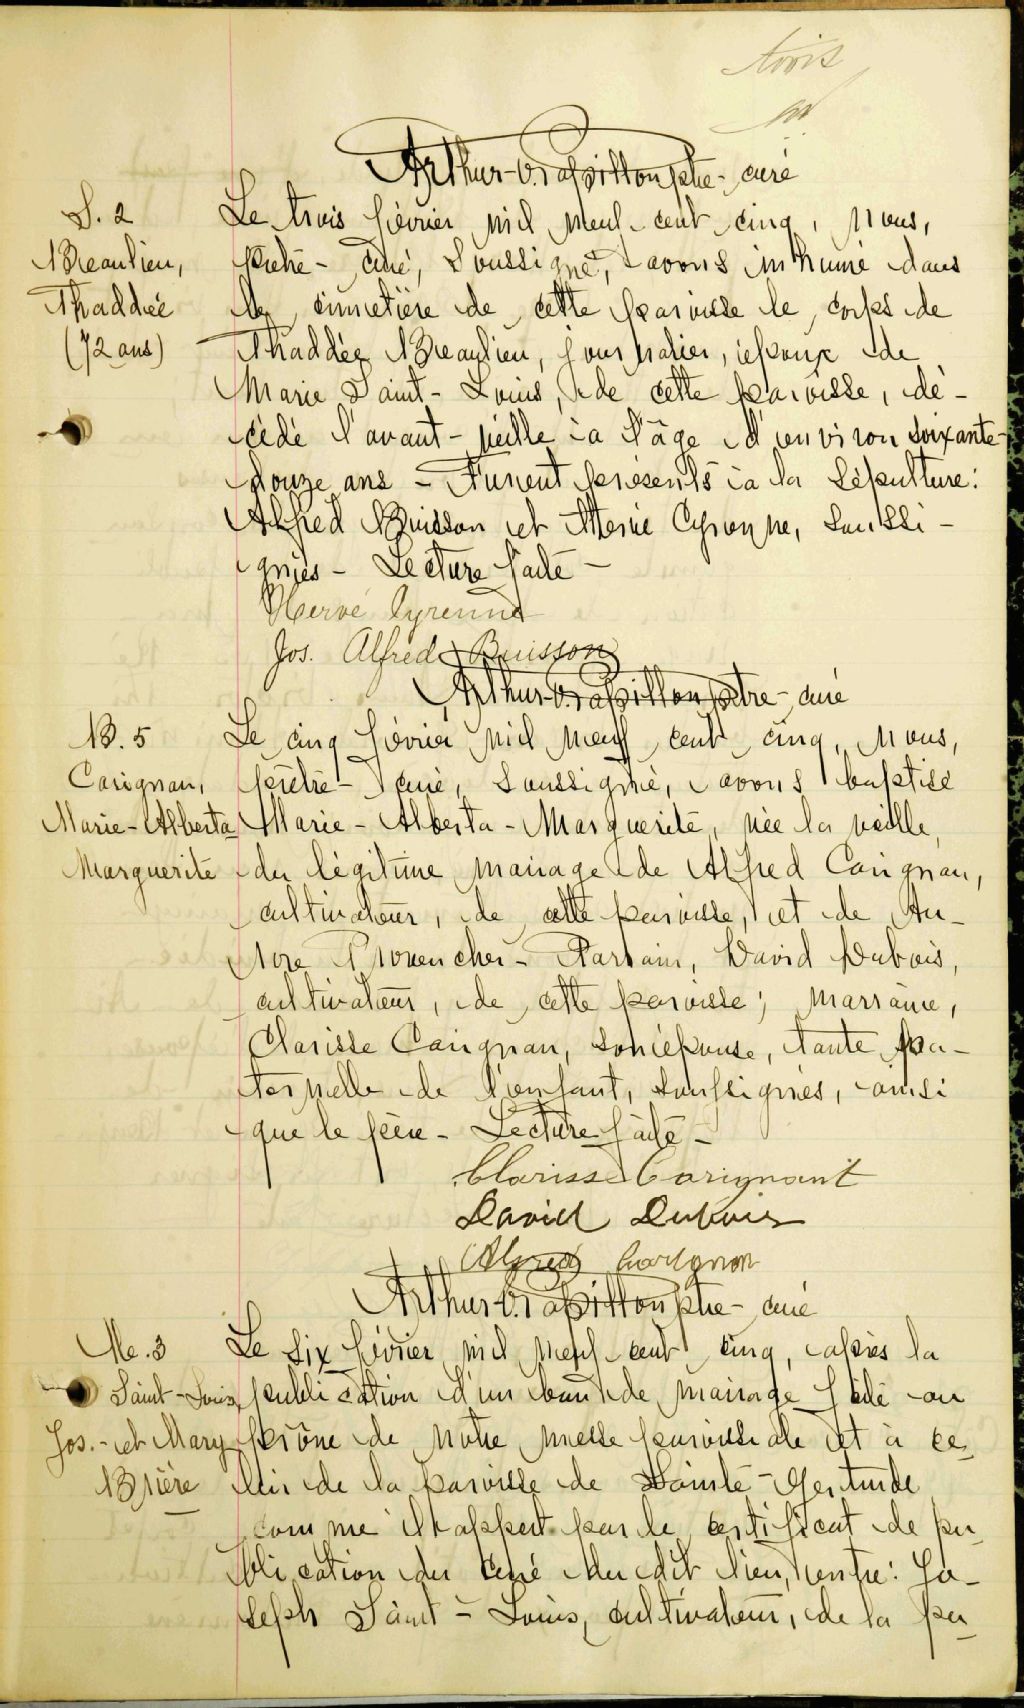 trois
Arthur-O. Papillon ptre-curé
S. 2
Beaulieu,
Thaddée
(72 ans)
Le trois février mil neuf cent cinq, nous,
prêtre-curé, soussigné, avons inhumé dans
le cimetière de cette paroisse le corps de
Thaddée Beaulieu, journalier, époux de
Marie Saint-Louis, de cette paroisse, dé-
cédé l'avant-veille à l'âge d'environ soixante-
douze ans - Furent présents à la sépulture:
Alfred Buisson et Hervé Cyrenne, soussi-
gnés - Lecture faite -
Hervé Cyrenne
Jos. Alfred Buisson
Arthur-O. Papillon ptre-curé
B. 5
Carignan,
Marie-Alberta
Marguerite
Le cinq février mil neuf cent cinq, nous,
prêtre-curé, soussigné, avons baptisé
Marie-Alberta-Marguerite, née la veille,
du légitime mariage de Alfred Carignan,
cultivateur, de cette paroisse, et de Au-
rore Provencher - Parrain, David Dubois,
cultivateur, de cette paroisse; marraine,
Clarisse Carignan, son épouse, tante pa-
ternelle de l'enfant, soussignés, ainsi
que le père - Lecture faite -
Clarisse Carignant
David Dubois
Alfred Carignan
Arthur-O. Papillon ptre-curé
M. 3
Saint-Louis
Jos.-et Mary
Brière
Le six février mil neuf cent cinq, après la
publication d'un ban de mariage faite au
prône de notre messe paroissiale et à ce-
lui de la paroisse de Sainte-Gertrude
comme il appert par le certificat de pu-
blication du curé du dit lieu, entre: Jo-
seph Saint-Louis, cultivateur, de la pa-